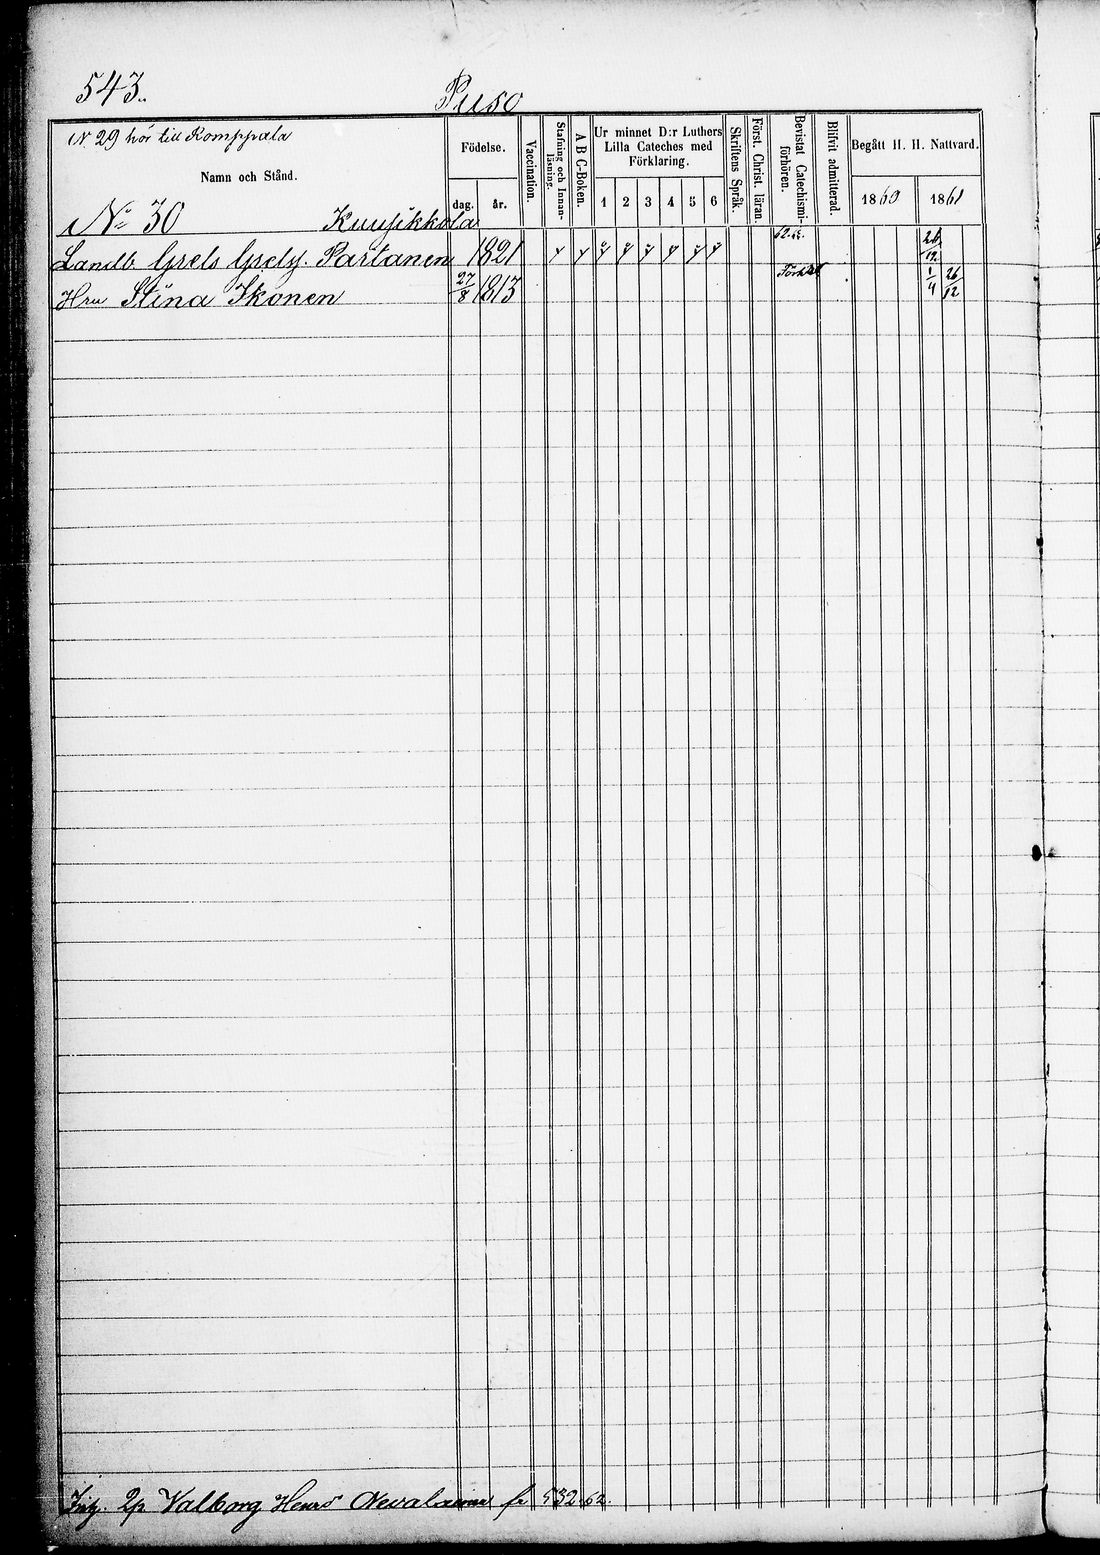 543.
Puso
N 29 hör till Komppala
Namn och Stånd.
Födelse.
dag.
år.
Vaccination.
Stafning och Innanläsning.
A B C-Boken.
Ur minnet D:r Luthers
Lilla Cateches med
Förklaring.
1 2 3 4 5 6
Skriftens Språk.
Först. Christ. läran.
Bevistat Catechismi-
förhören.
Blifvit admitterad.
Begått H. H. Nattvard.
1860 1861
No 30 Kuusikkola
Landb. Grels Grelsj. Partanen 1821 62. 26/12
Hru Stina Ikonen 27/8 1813 1/4 26/12
2p Valborg Henrs Nevalainen fr 532.62.